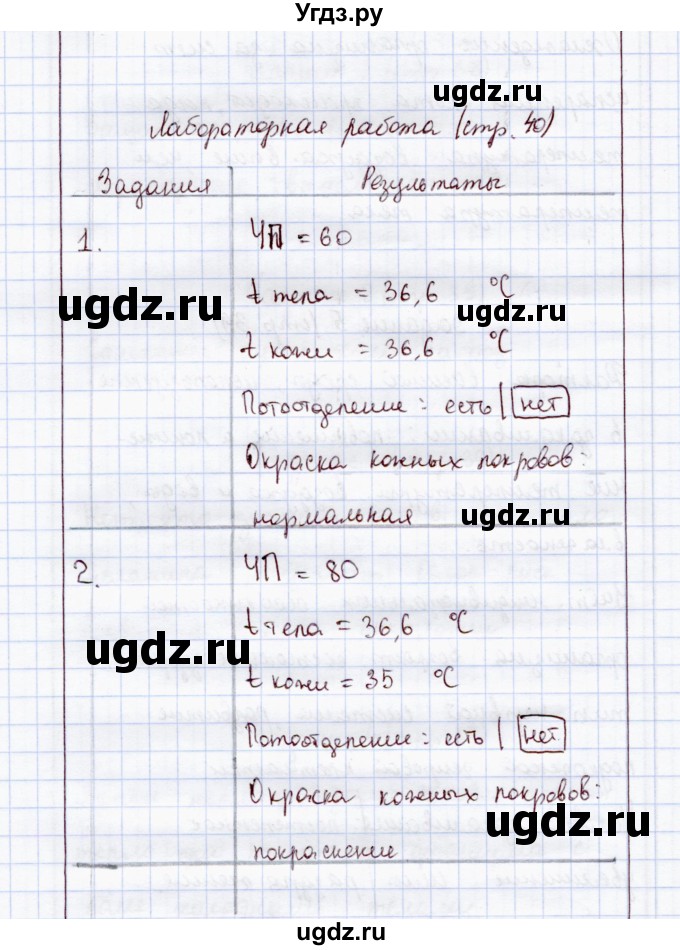 Угдз.ру
ugdz.ru
Лабораторная работа (стр. 40)
Задания Результаты
1. ЧП = 60
ugdz.ru
t тела = 36,6 °C
ugdz.ru
t кожи = 36,6 °C
Потоотделение: есть | нет
Окраска кожных покровов:
нормальная
ugdz.ru
2. ЧП = 80
t тела = 36,6 °C
ugdz.ru
t кожи = 35 °C
Потоотделение: есть | нет
Окраска кожных покровов:
ugdz.ru
покраснение
ugdz.ru